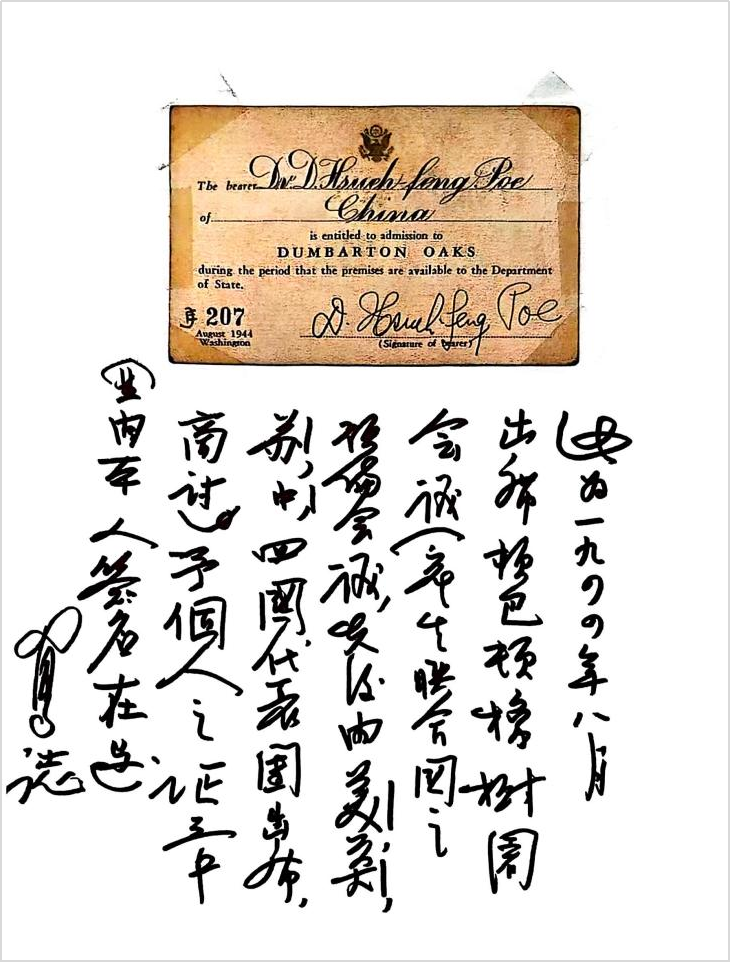 The bearer Dr. D. Hsueh-feng Poe
of China
is entitled to admission to
DUMBARTON OAKS
during the period that the premises are available to the Department
of State.
207
August 1944
Washington
D. Hsueh-feng Poe
(Signature of bearer)
此为一九四四年八月
出席頓巴頓橡樹園
会议(产生联合国之
预备会议,先後由美,英,
苏,中,四國代表團出席,
商讨)予個人之证
(並由本人签名在
誌